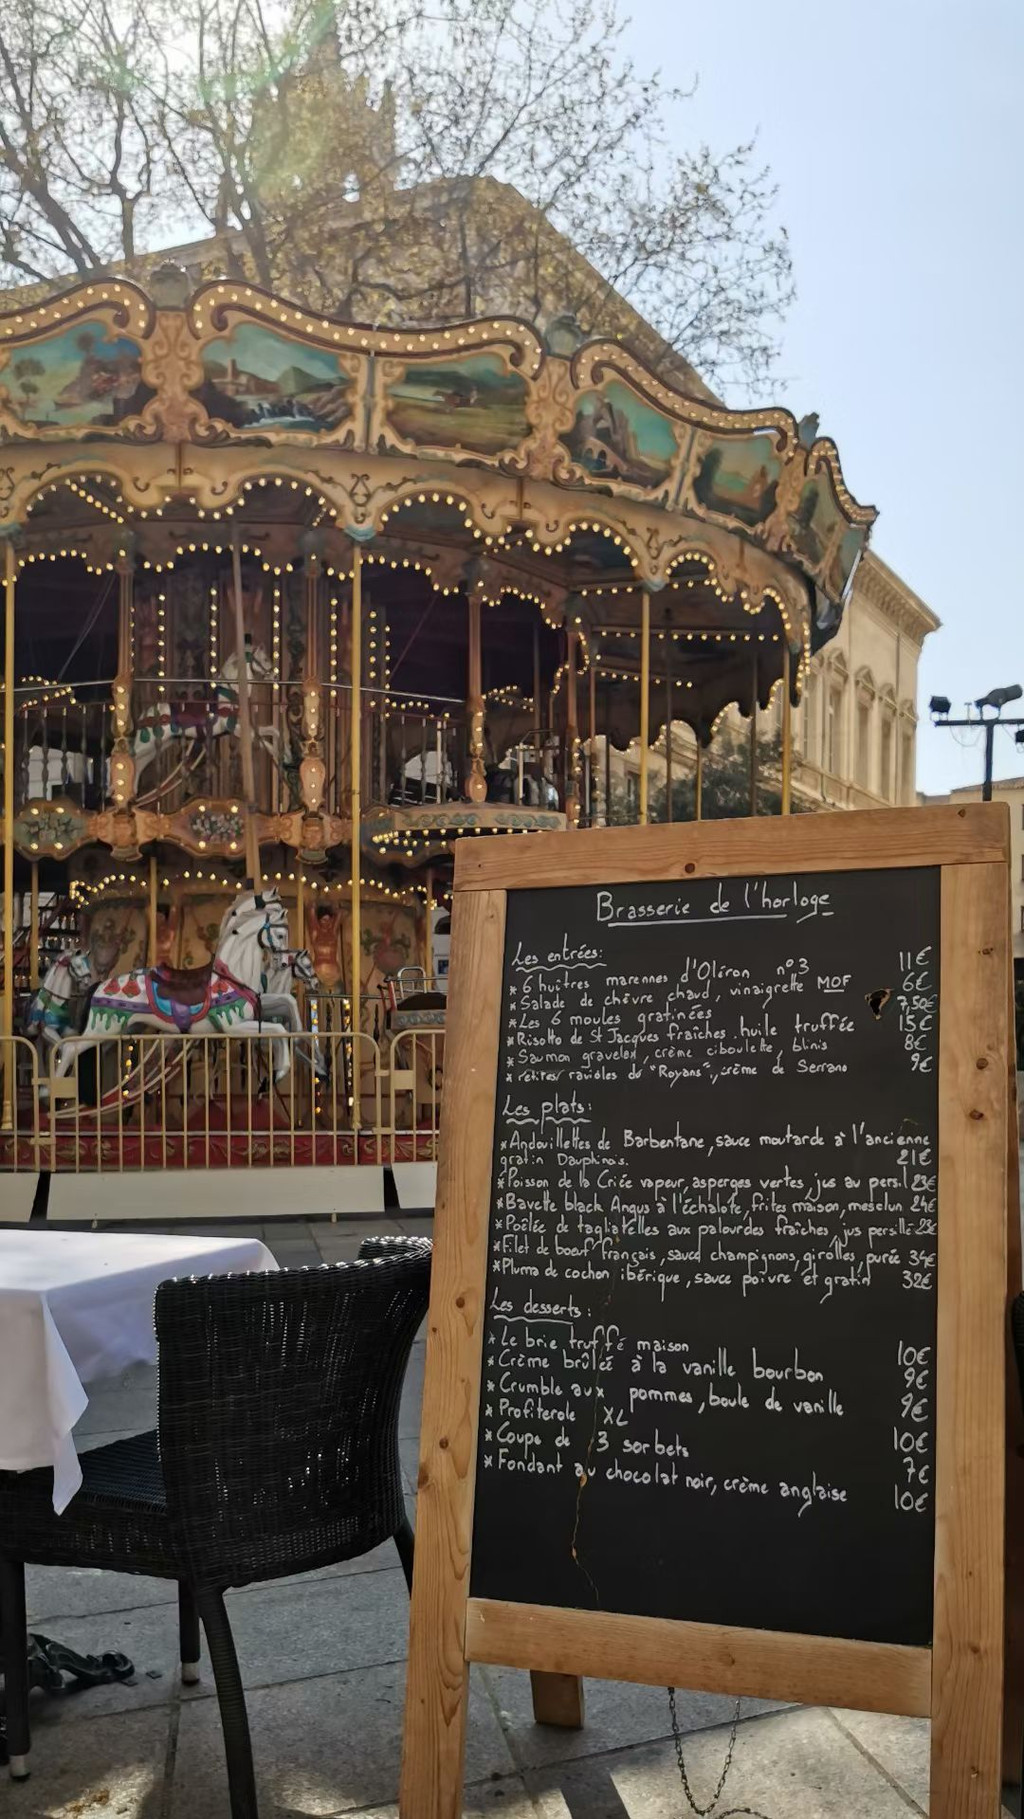 Brasserie de l'horloge
Les entrées:
* 6 huîtres marennes d'Oléron n°3 11€
* Salade de chèvre chaud, vinaigrette MOF 6€
* Les 6 moules gratinées 7,50€
* Risotto de St Jacques fraîches huile truffée 15€
* Saumon gravelax, crème ciboulette, blinis 8€
* Petites ravioles du "Royans", crème de Serrano 9€
Les plats:
* Andouillettes de Barbentane, sauce moutarde à l'ancienne
gratin Dauphinois. 21€
* Poisson de la Criée vapeur, asperges vertes, jus au persil 23€
* Bavette black Angus à l'échalote, frites maison, mesclun 24€
* Poêlée de tagliatelles aux palourdes fraîches, jus persillé 23€
* Filet de boeuf français, sauce champignons, girolles, purée 34€
* Pluma de cochon ibérique, sauce poivre et gratin 32€
Les desserts:
* Le brie truffé maison 10€
* Crème brûlée à la vanille bourbon 9€
* Crumble aux pommes, boule de vanille 9€
* Profiterole XL 10€
* Coupe de 3 sorbets 7€
* Fondant au chocolat noir, crème anglaise 10€